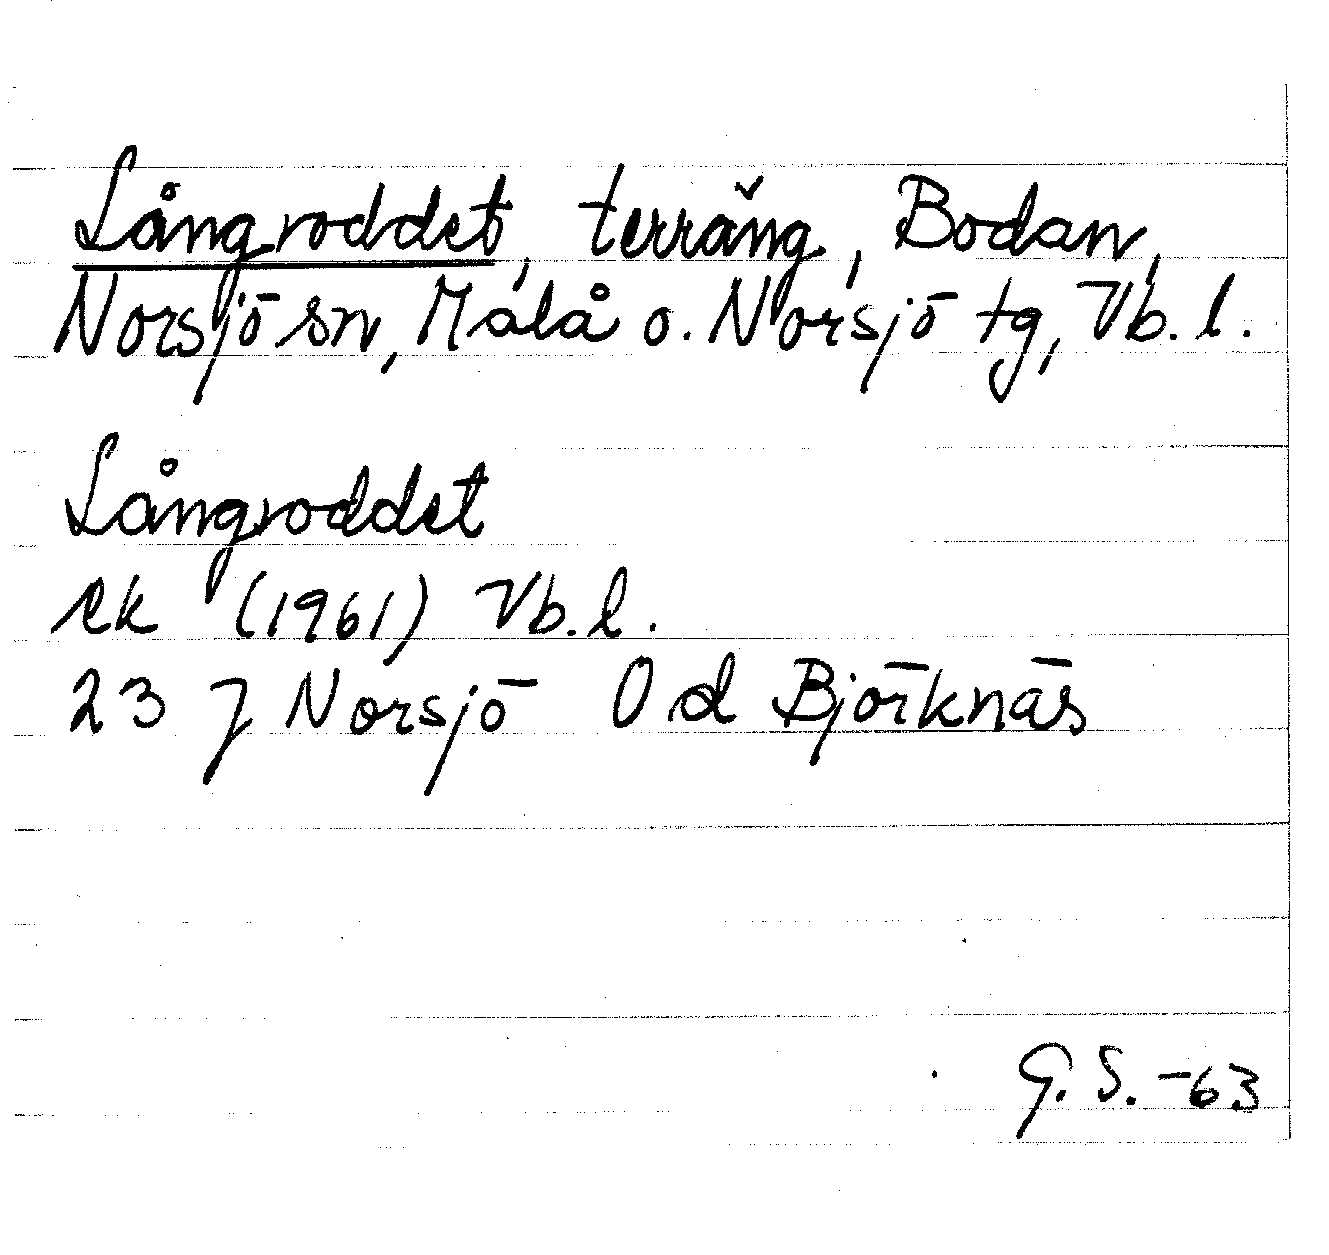 Långroddet, terräng, Bodan,
Norsjö sn, Malå o. Norsjö tg, Vb. l.
Långroddet
ek (1961) Vb. l.
23 J Norsjö 0 d Björknäs
G. S. -63